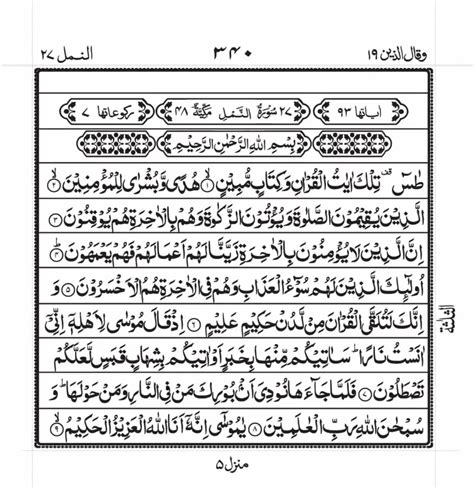 وقال الذين ١٩ ٣٤٠ النمل ٢٧
اٰیاتها ٩٣ ٢٧ سُوْرَةُ النَّمْلِ مَكِّيَّةٌ ٤٨ رکوعاتها ٧
بِسْمِ اللّٰهِ الرَّحْمٰنِ الرَّحِيْمِ
طٰسٓ ۫ تِلْكَ اٰيٰتُ الْقُرْاٰنِ وَكِتَابٍ مُّبِيْنٍ ۙ﴿۱﴾ هُدًى وَّبُشْرٰى لِلْمُؤْمِنِيْنَ ۙ﴿۲﴾
الَّذِيْنَ يُقِيْمُوْنَ الصَّلٰوةَ وَيُؤْتُوْنَ الزَّكٰوةَ وَهُمْ بِالْاٰخِرَةِ هُمْ يُوْقِنُوْنَ ﴿۳﴾
اِنَّ الَّذِيْنَ لَا يُؤْمِنُوْنَ بِالْاٰخِرَةِ زَيَّنَّا لَهُمْ اَعْمَالَهُمْ فَهُمْ يَعْمَهُوْنَ ؕ﴿۴﴾
اُولٰٓئِكَ الَّذِيْنَ لَهُمْ سُوْٓءُ الْعَذَابِ وَهُمْ فِي الْاٰخِرَةِ هُمُ الْاَخْسَرُوْنَ ﴿۵﴾
وَاِنَّكَ لَتُلَقَّى الْقُرْاٰنَ مِنْ لَّدُنْ حَكِيْمٍ عَلِيْمٍ ﴿۶﴾ اِذْ قَالَ مُوْسٰى لِاَهْلِهٖٓ اِنِّيْٓ
اٰنَسْتُ نَارًا ؕ سَاٰتِيْكُمْ مِّنْهَا بِخَبَرٍ اَوْ اٰتِيْكُمْ بِشِهَابٍ قَبَسٍ لَّعَلَّكُمْ
تَصْطَلُوْنَ ﴿۷﴾ فَلَمَّا جَآءَهَا نُوْدِيَ اَنْۢ بُوْرِكَ مَنْ فِي النَّارِ وَمَنْ حَوْلَهَا ؕ وَ
سُبْحٰنَ اللّٰهِ رَبِّ الْعٰلَمِيْنَ ﴿۸﴾ يٰمُوْسٰٓى اِنَّهٗٓ اَنَا اللّٰهُ الْعَزِيْزُ الْحَكِيْمُ ۙ﴿۹﴾
منزل ۵